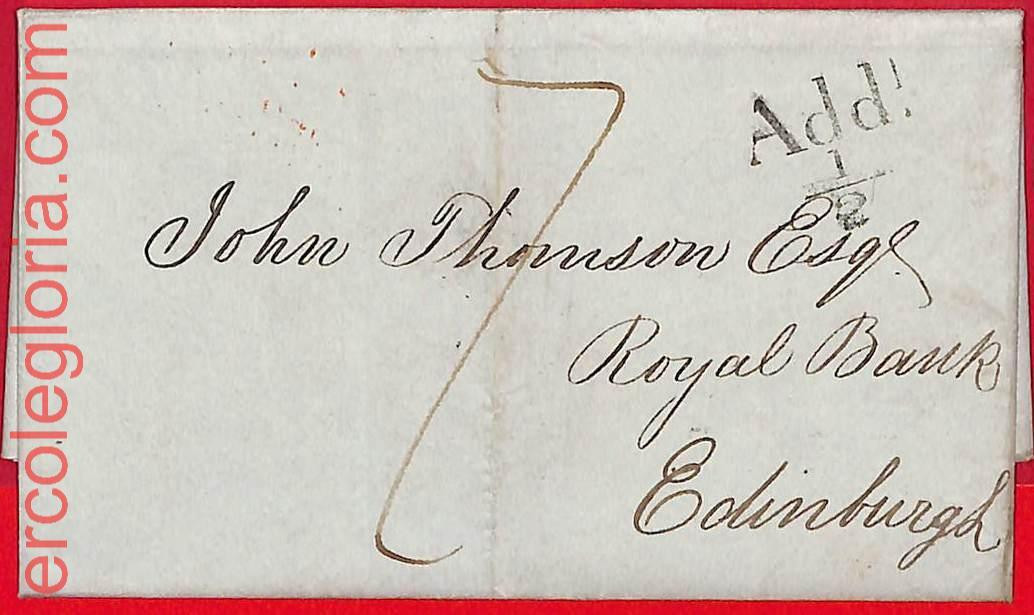 ercolegloria.com
7
Addl
1/2
John Thomson Esqr
Royal Bank
Edinburgh